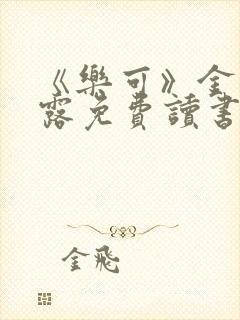 《樂可》金
露免費讀書
金飛